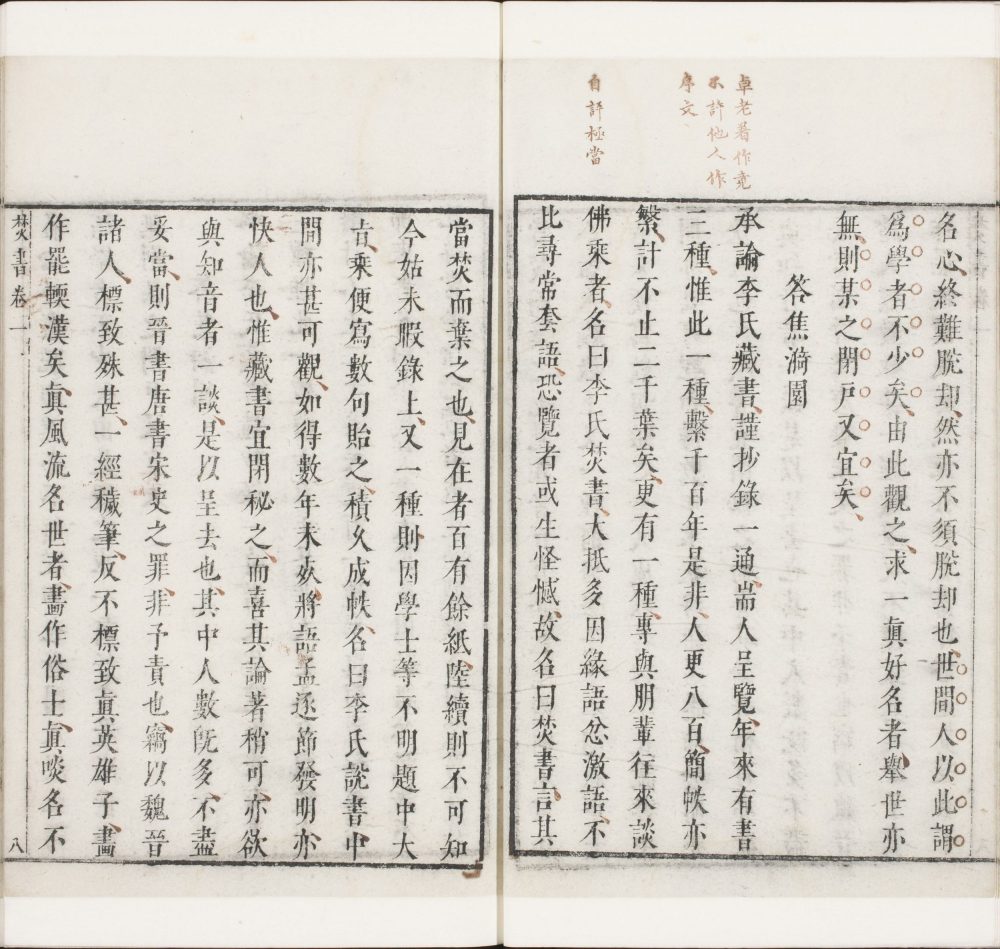 卓老着作竟
不許他人作
序文
自評極當
名心終難脫却然亦不須脫却也世間人以此謂
爲學者不少矣由此觀之求一眞好名者舉世亦
無則某之閉戸又宜矣
答焦漪園
承諭李氏藏書謹抄錄一通耑人呈覽年來有書
三種惟此一種繫千百年是非人更八百簡帙亦
繁計不止二千葉矣更有一種專與朋輩往來談
佛乘者名曰李氏焚書大抵多因緣語忿激語不
比尋常套語恐覽者或生怪憾故名曰焚書言其
當焚而棄之也見在者百有餘紙陸續則不可知
今姑未暇錄上又一種則因學士等不明題中大
旨乘便寫數句貽之積久成帙名曰李氏說書中
間亦甚可觀如得數年未死將語孟逐節發明亦
快人也惟藏書宜閉秘之而喜其論著稍可亦欲
與知音者一談是以呈去也其中人數旣多不盡
妥當則晉書唐書宋史之罪非予責也竊以魏晉
諸人標致殊甚一經穢筆反不標致眞英雄子畫
作罷輭漢矣眞風流名世者畵作俗士眞啖名不
焚書 卷一
八